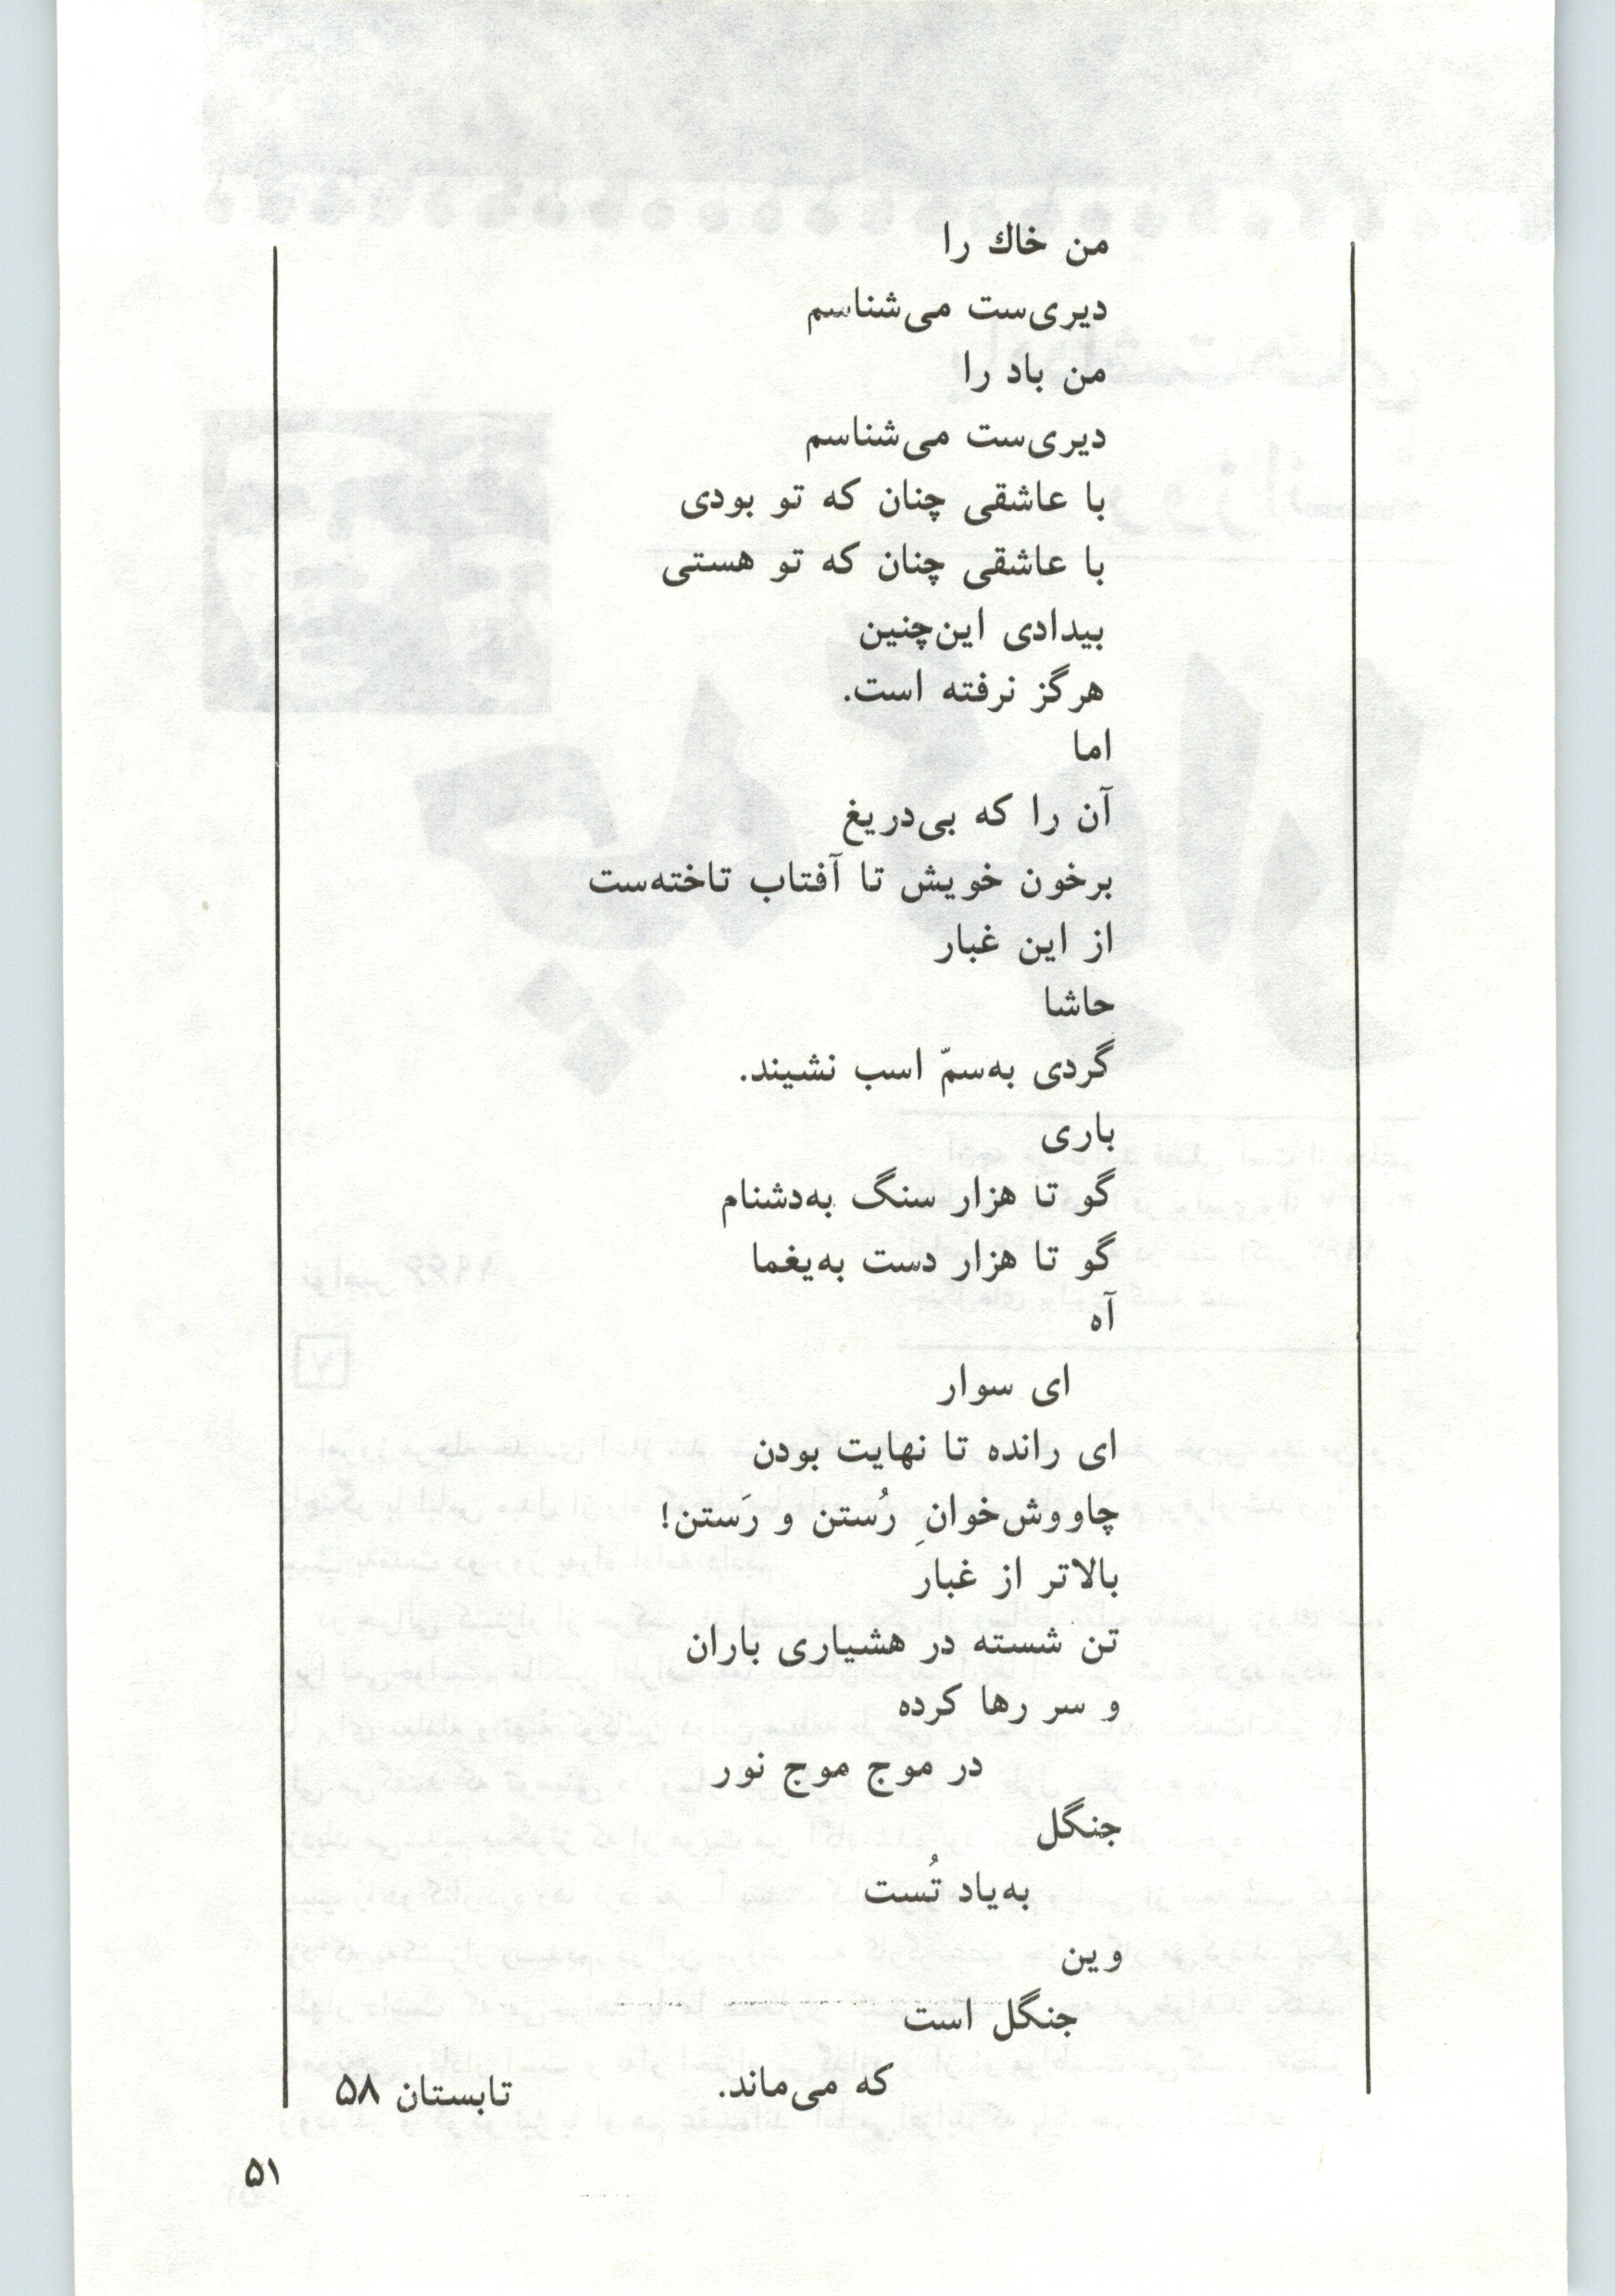 من خاك را
دیری‌ست می‌شناسم
من باد را
دیری‌ست می‌شناسم
با عاشقی چنان که تو بودی
با عاشقی چنان که تو هستی
بیدادی این‌چنین
هرگز نرفته است.
اما
آن را که بی‌دریغ
برخون خویش تا آفتاب تاخته‌ست
از این غبار
حاشا
گردی به‌سمّ اسب نشیند.
باری
گو تا هزار سنگ به‌دشنام
گو تا هزار دست به‌یغما
آه
ای سوار
ای رانده تا نهایت بودن
چاووش‌خوانِ رُستن و رَستن!
بالاتر از غبار
تن شسته در هشیاری باران
و سر رها کرده
در موج موج نور
جنگل
به‌یاد تُست
وین
جنگل است
که می‌ماند.
تابستان ۵۸
۵۱